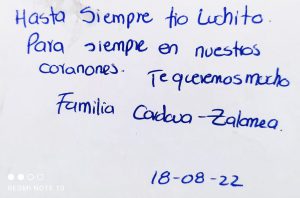 Hasta Siempre tio Luchito.
Para siempre en nuestros
coranones. Te queremos mucho
Familia Cordova-Zalamea.
18-08-22
REDMI NOTE 10